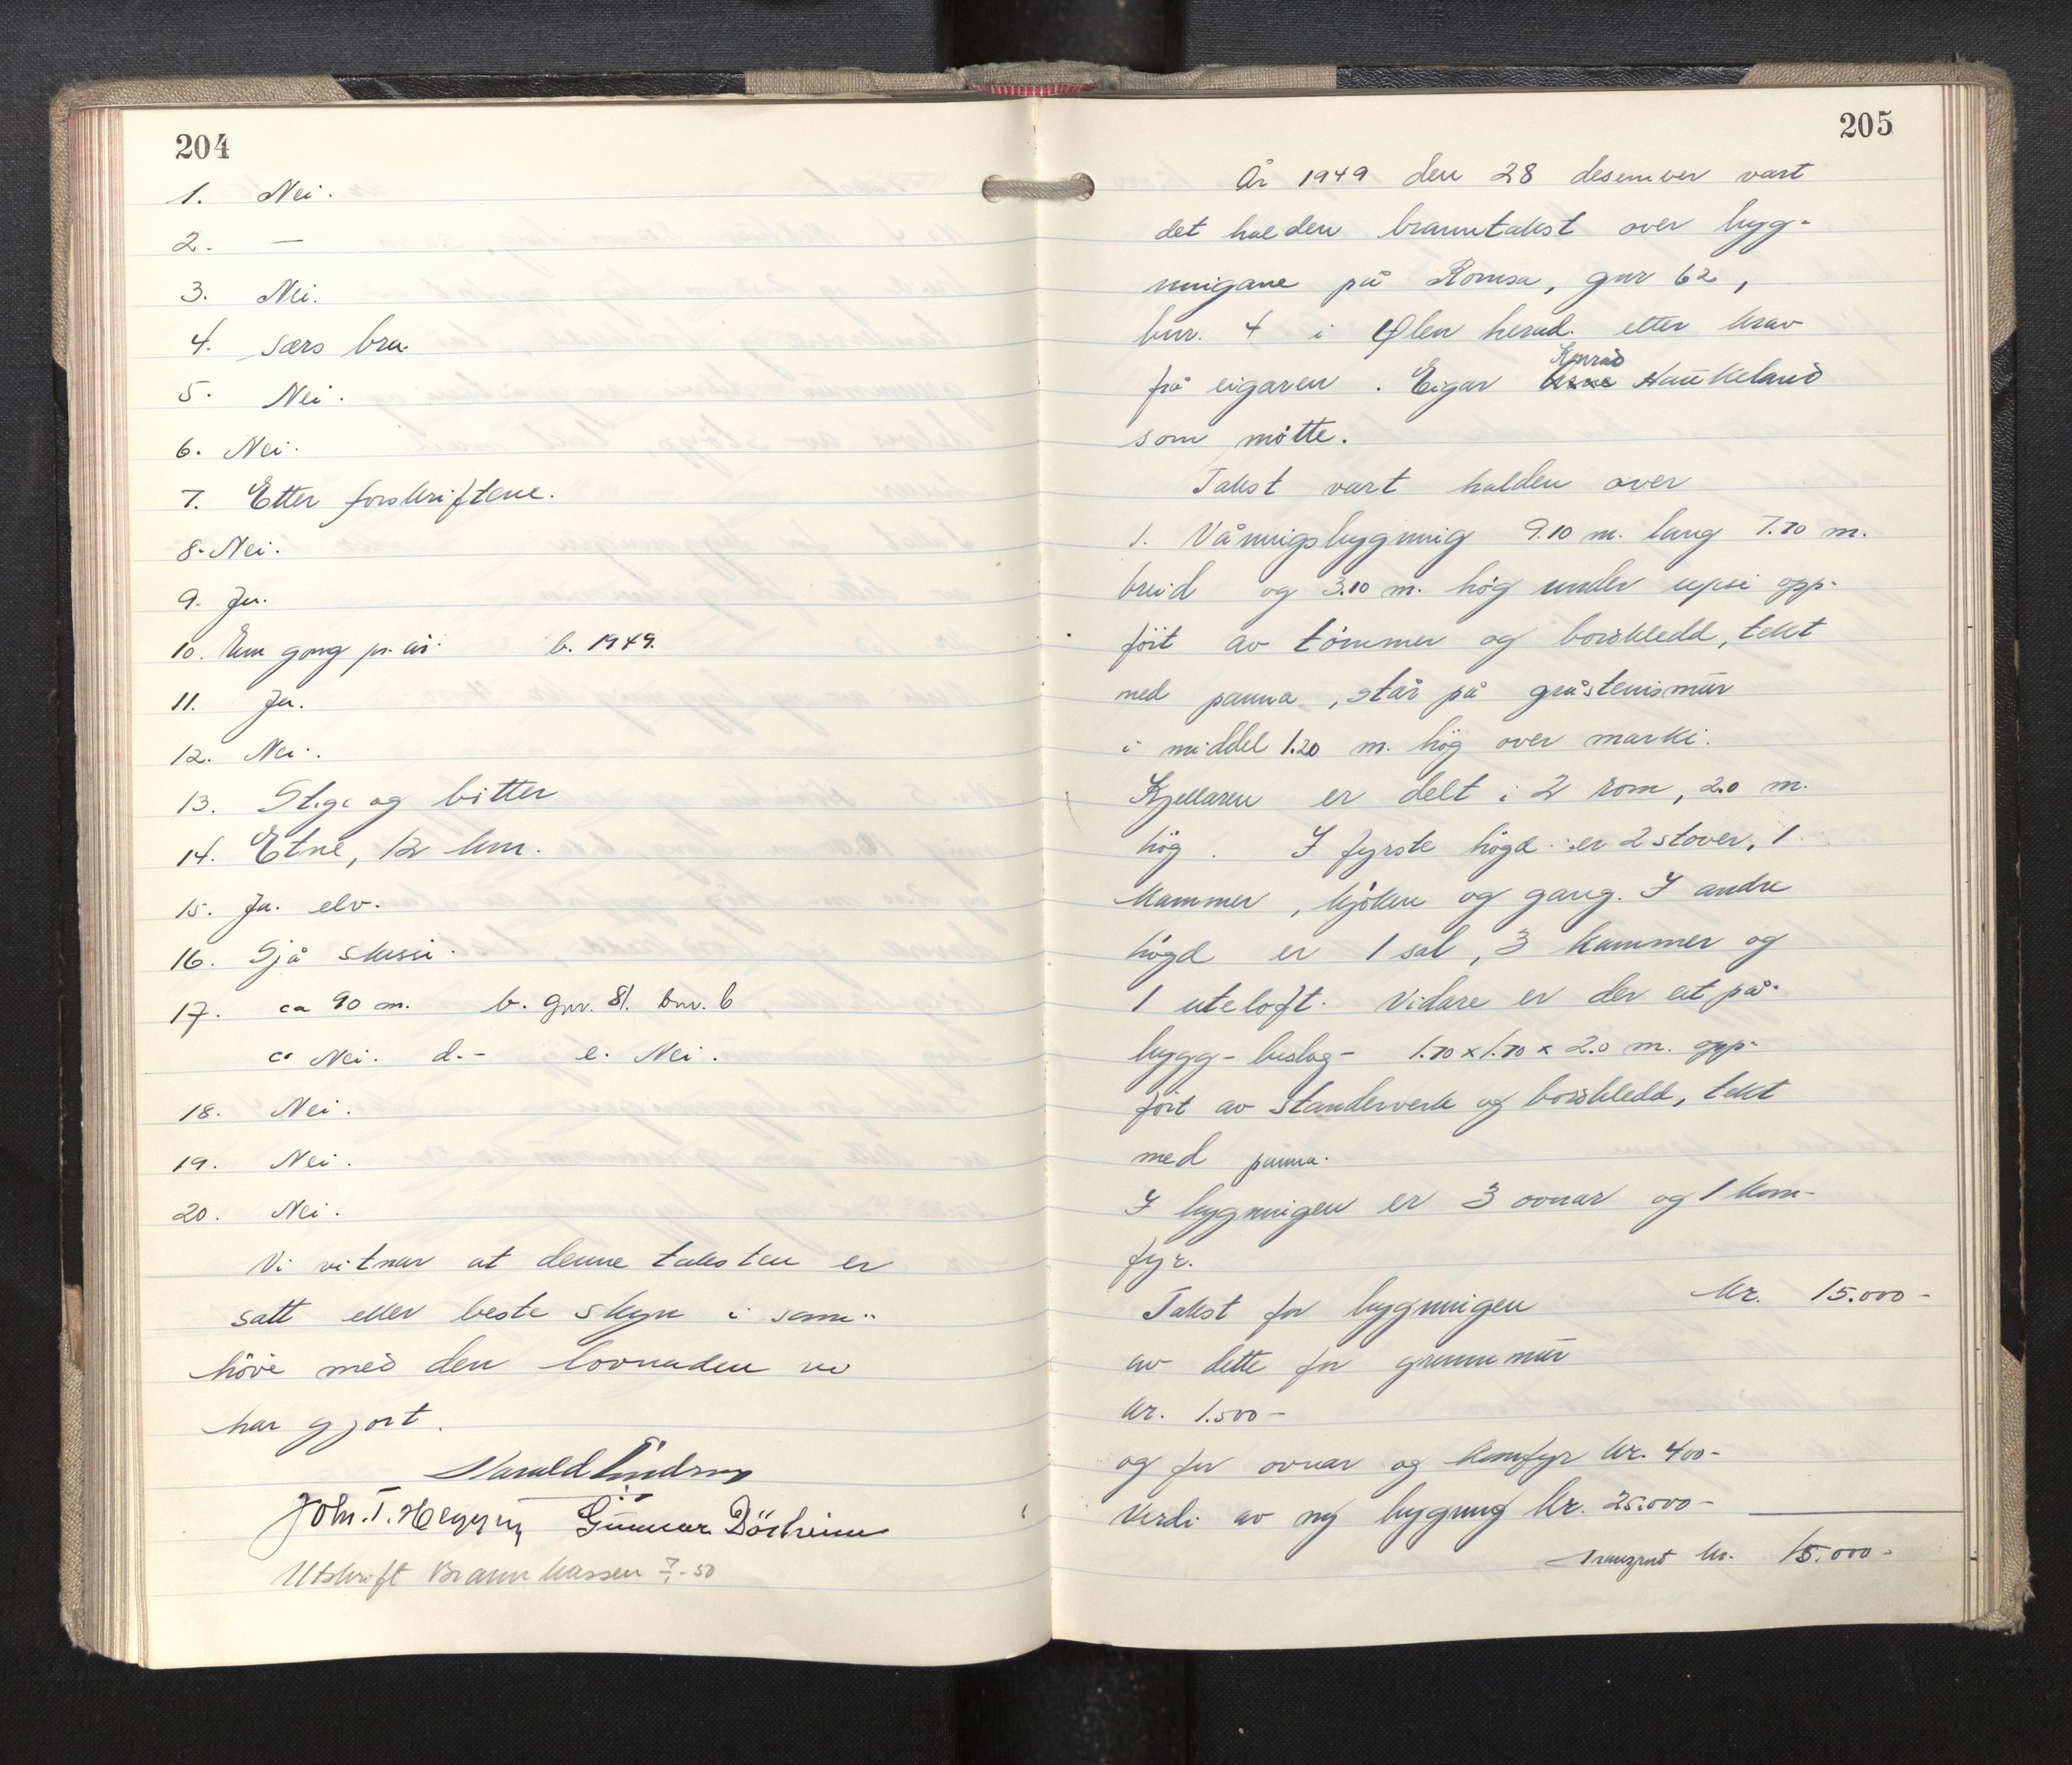 204
1. Nei.
2. —
3. Nei.
4. særs bra
5. Nei.
6. Nei.
7. Etter forskriftene.
8. Nei.
9. Ja.
10. Ein gong pr. år. b. 1949.
11. Ja.
12. Nei.
13. Stige og bøtter
14. Etne, 12 km.
15. Ja. elv.
16. Sjå skissi.
17. ca 90 m. b. gnr. 81. bnr. 6
c. Nei. d. - e. Nei.
18. Nei.
19. Nei.
20. Nei.
Vi vitnar at denne taksten er
sett etter beste skyn i sam-
høve med den lovnaden vi
har gjort.
Harald
John. T. Gunnar
Utskrift Brannkassen 7/1-50
205
År 1949 den 28 desember vart
det halden branntakst over byg-
ningane på Romsa, gnr 62,
bnr. 4 i Ølen herad. etter krav
frå eigaren. Eigar Konrad Haukeland
som møtte.
Takst vart halden over
1. Våningsbygning 9.10 m. lang 7.70 m.
breid og 3.10 m. høg under upsi opp-
ført av tømmer og bordkledd, tekt
med panna, står på gråsteinsmur
i middel 1.20 m. høg over marki.
Kjellaren er delt i 2 rom, 2.0 m.
høg. I fyrste høgd er 2 stover, 1
kammer, kjøken og gang. I andre
høgd er 1 sal, 3 kammer og
1 uteloft. Vidare er der eit på-
bygg - bislag - 1.70 x 1.70 x 2.0 m. opp-
ført av standerverk og bordkledd, tekt
med panna.
I bygningen er 3 ovnar og 1 kom-
fyr.
Takst for bygningen kr. 15.000-
av dette for grunnmur
kr. 1.500-
og for ovnar og komfyr kr. 400-
Verdi av ny bygning kr. 25.000-
Transport kr. 15.000-